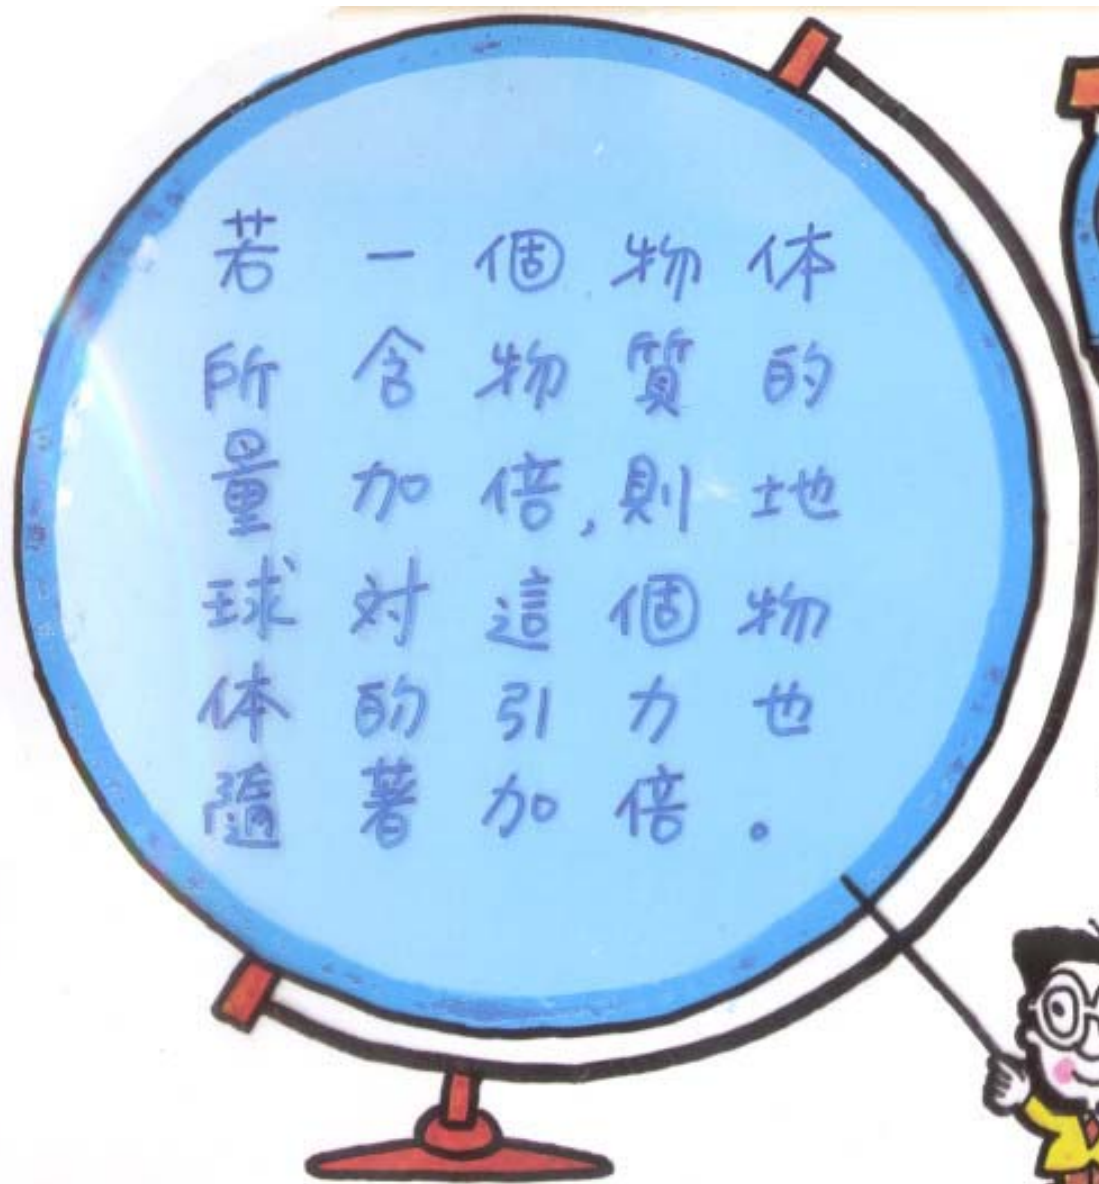 若一個物体
所含物質的
量加倍,則地
球对這個物
体的引力也
隨著加倍。